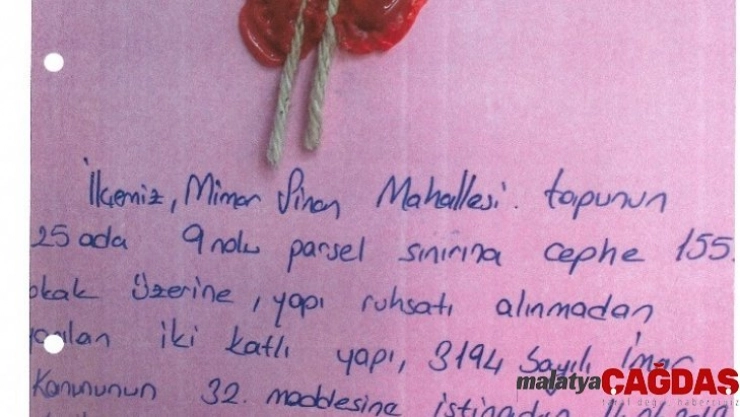 İlçemiz, Mimar Sinan Mahallesi. tapunun
25 ada 9 nolu parsel sınırına cephe 155.
okak üzerine, yapı ruhsatı alınmadan
yapılan iki katlı yapı, 3194 Sayılı İmar
Kanununun 32. maddesine istinaden
malatya ÇAĞDAŞ